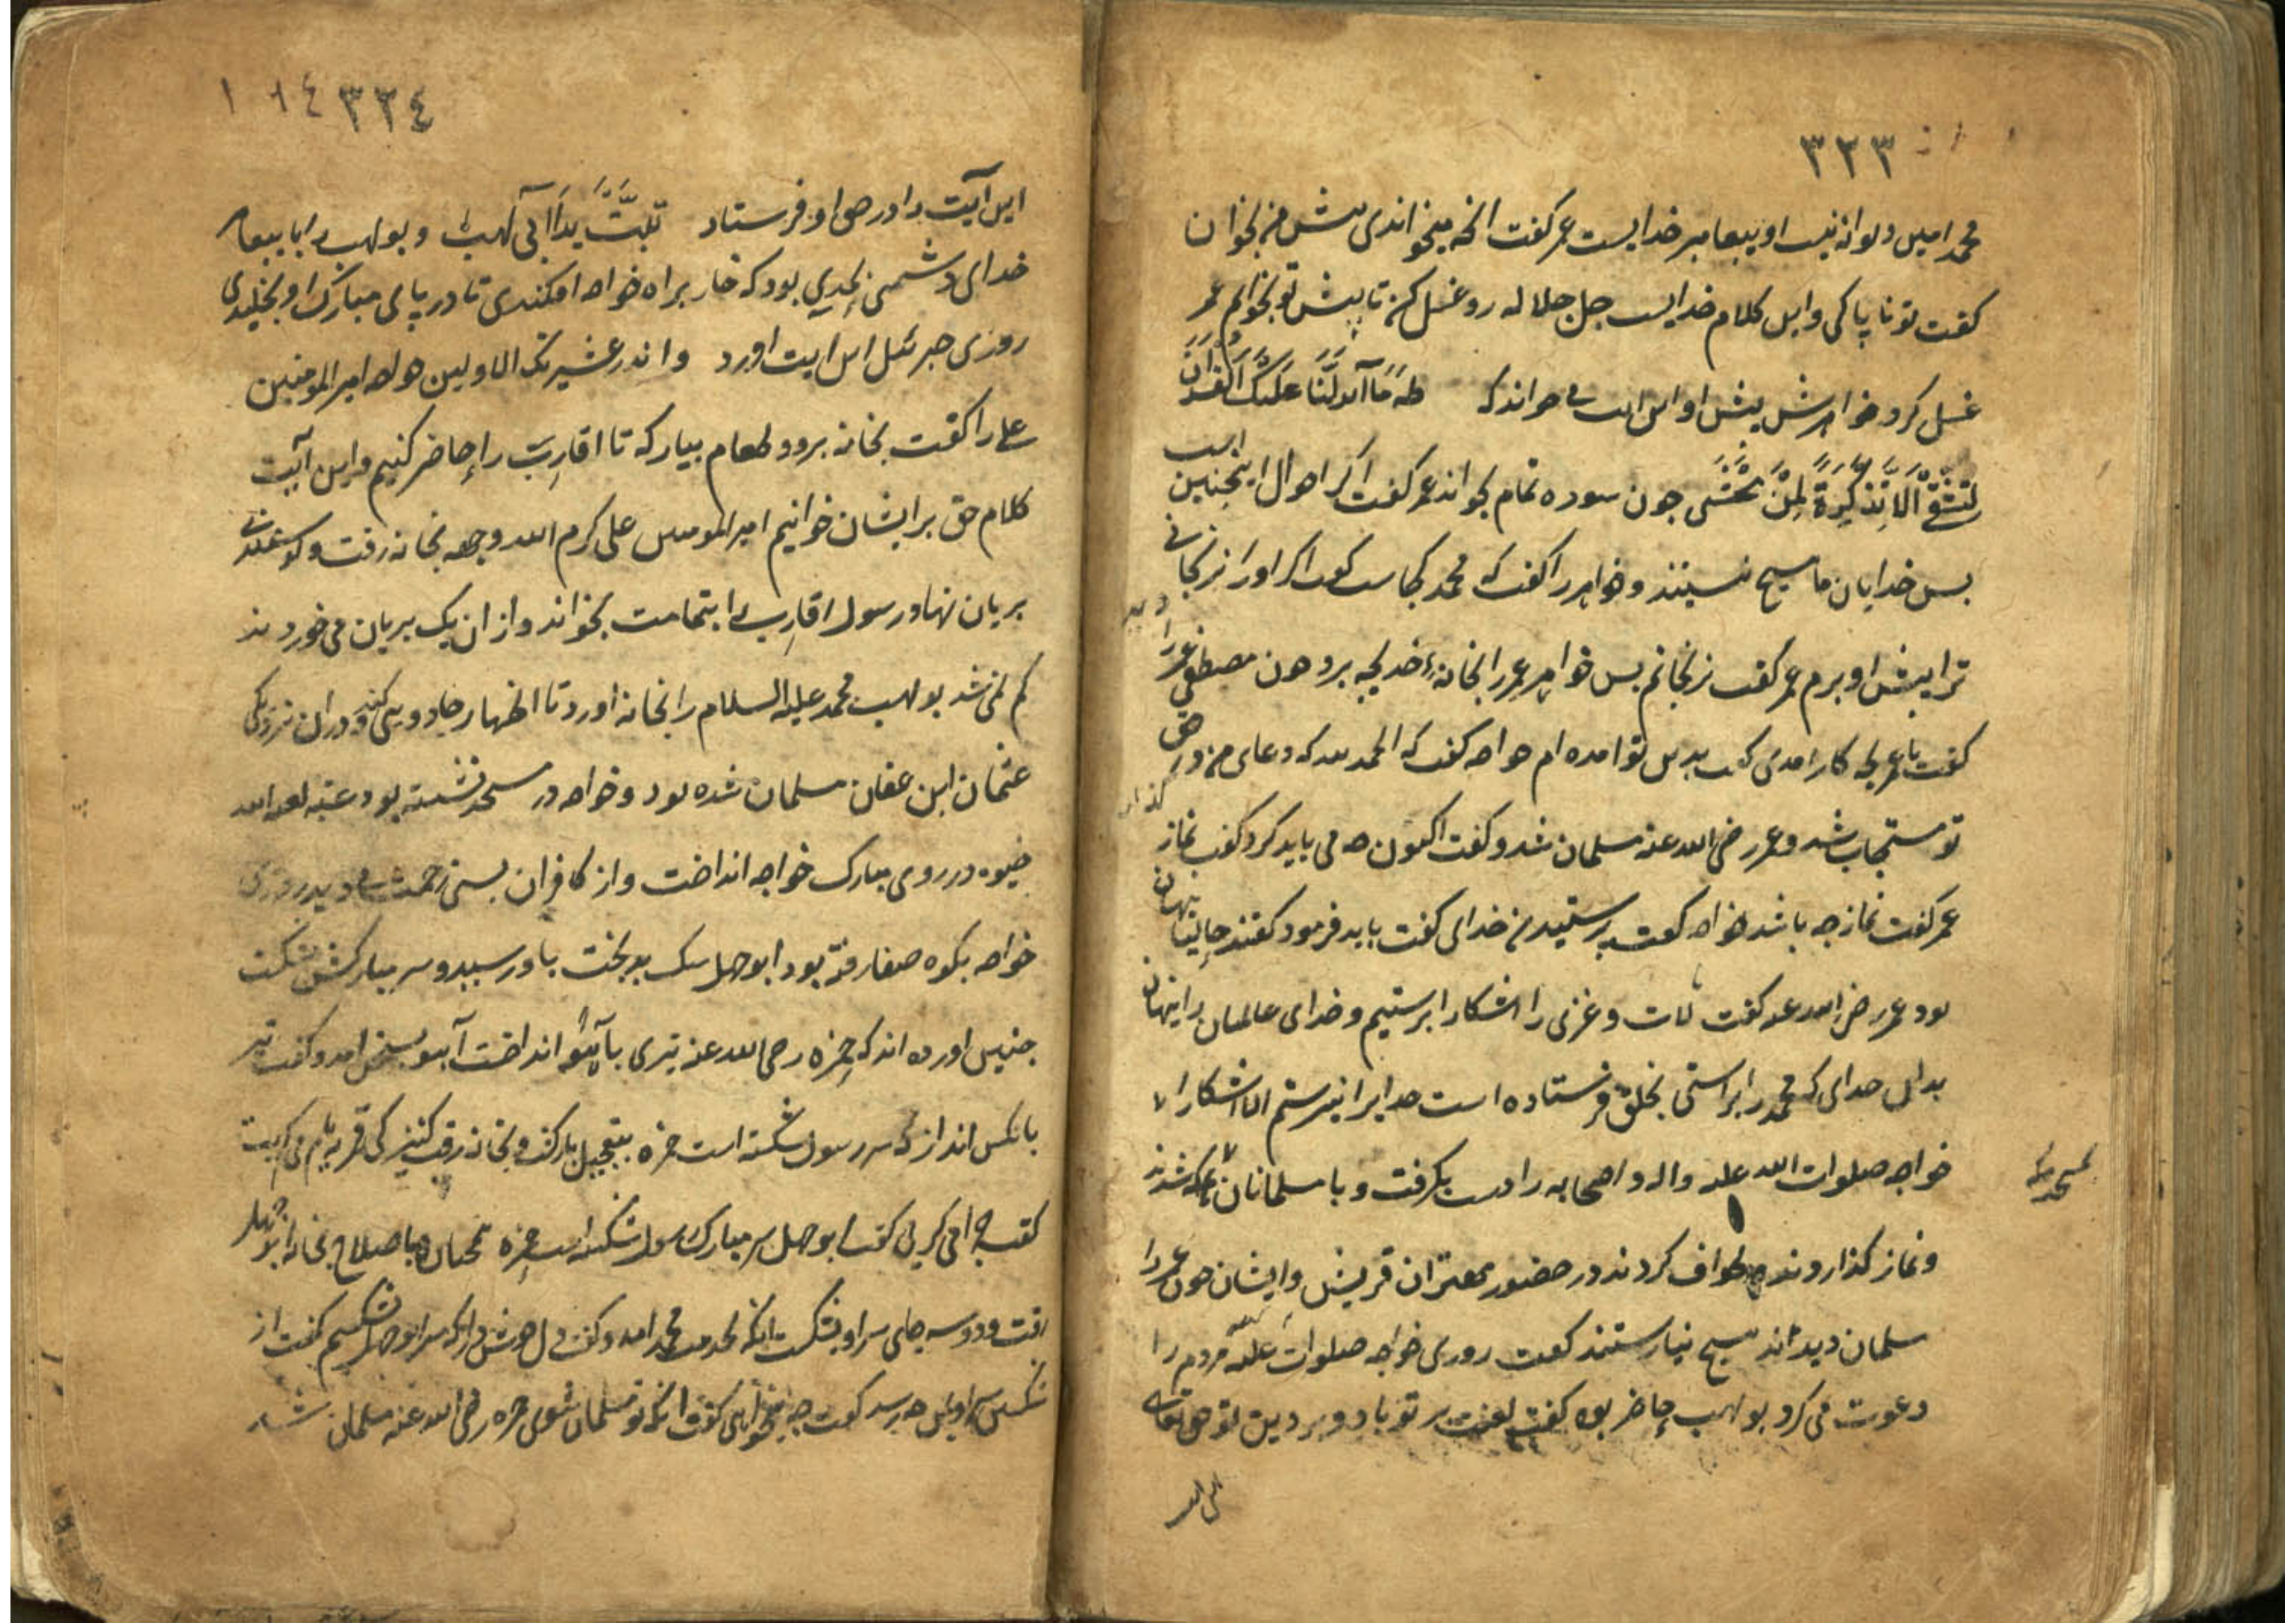 ٣٢٣
محمد امین دیوانه نیست او پیغامبر خدایست عمر گفت انچه میخواندی پیش من بخوان
گفت تو ناپاکی واین کلام خدایست جل جلاله رو غسل کن تا پیش تو بخوانم عمر
غسل کرد خواهرش پیش او این ایت می خواند که طه ما انزلنا علیک القران
لتشقی الا تذکرة لمن یخشی جون سوره تمام بخواند عمر گفت اکر احوال اینجنین است
بس خدایان ما هیچ نیستند وخواهر را گفت که محمد کجاست گفت اکر اورا نرنجانی
ترا پیش او برم عمر گفت نرنجانم بس خواهر عمر را بخانهٔ خدیجه برد جون مصطفی عمر را دید
گفت یا عمر بچه کار امدی گفت بدین تو امده ام خواجه گفت که الحمد لله که دعای من در حق
تو مستجاب شد وعمر رضی الله عنه مسلمان شد وگفت اکنون چه می باید کرد گفت نماز گذاردن
عمر گفت نماز چه باشد خواجه گفت پرستیدن خدای گفت باید فرمود گفتند جائیها پنهان
بود عمر رضی الله عنه گفت لات و عزی را اشکارا پرستیم و خدای عالمیان را پنهان
بدان خدای که محمد را براستی بخلق فرستاده است خدایرا نپرستم الا اشکارا
خواجه صلوات الله علیه واله و اصحابه را دست بگرفت و با مسلمانان بمکه شدند
ونماز گذاردند و طواف کردند در حضور مهتران قریش وایشان جون عمر را
مسلمان دیدند هیچ نیارستند گفت روزی خواجه صلوات الله علیه مردم را
دعوت می کرد بولهب حاضر بود گفت لعنت بر تو باد و بر دین تو حق تعالی
این ایت
٣٣٤
این آیت را در حق او فرستاد تبت یدا ابی لهب و بولهب را با پیغامبر
خدای دشمنی بحدی بود که خار براه خواجه افکندی تا در پای مبارک او بخلیدی
روزی جبرئیل این ایت اورد وانذر عشیرتک الاولین خواجه امیر المومنین
علی را گفت بخانه برو و طعام بیار که تا اقارب را حاضر کنیم واین آیت
کلام حق بر ایشان خوانیم امیر المومنین علی کرم الله وجهه بخانه رفت و گوسفندی
بریان نهاد رسول اقارب را بتمامت بخواند و از ان یک بریان می خوردند
کم نمی شد بولهب محمد علیه السلام را بخانه اورد تا اظهار جادویی کند و دران نزدیکی
عثمان ابن عفان مسلمان شده بود و خواجه در مسجد نشسته بود عتبه لعنه الله
خیوه در روی مبارک خواجه انداخت و از کافران بسی زحمت می دید روزی
خواجه بکوه صفا رفته بود ابوجهل سگ بدبخت باو رسید و سر مبارکش بشکست
جنین اورده اند که حمزه رضی الله عنه تیری بآهو انداخت آهو بسخن امد و گفت تیر
بانکس انداز که سر رسول شکسته است حمزه بتعجیل باز گشت و بخانه رفت کنیزکی بر بام می گریست
گفت چرا می گریی گفت ابوجهل سر مبارک رسول شکسته است حمزه همچنان با صلاح بخانه ابوجهل
رفت و دو سه جای سر او بشکست انگه بخدمت محمد امد و گفت دل خوش دار که سر ابوجهل شکستم گفت از
شکستن سر او بمن چه رسد گفت چه میخواهی گفت انکه تو مسلمان شوی حمزه رضی الله عنه مسلمان شد